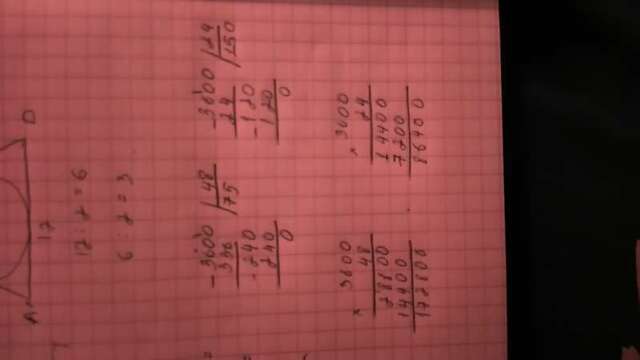 A D
12
12 : 2 = 6
6 : 2 = 3
- 3600 | 48
336 | 75
- 240
240
0
- 3600 | 24
24 | 150
- 120
120
0
3600
× 48
28800
14400
172800
3600
× 24
14400
7200
86400